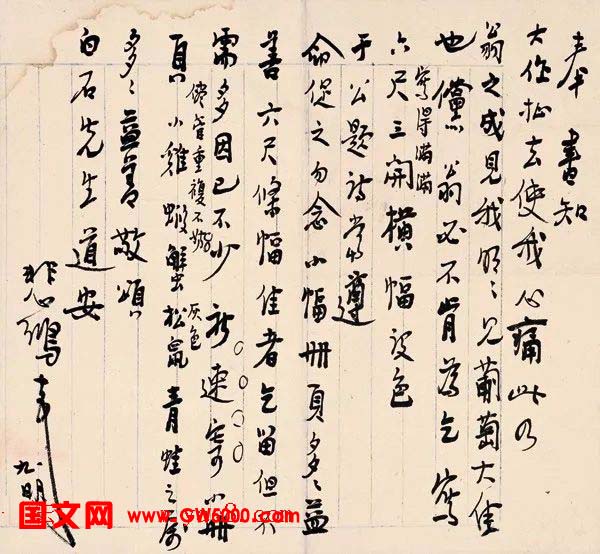 奉書知
大作扯去使我心痛此乃
翁之成見我明明見葡萄大佳
也儻翁必不肯為乞寫
寫得滿滿
六尺三開橫幅設色
于公題詩當遵
命促之勿念小幅冊頁多多益
善六尺條幅佳者乞留但不
需多因已不少祈速寄小冊
儘管重複不妨
頁小雞蝦蟹松鼠青蛙之屬
灰色
多多益善敬頌
白石先生道安
悲鴻
国文网 www.GW5000.com